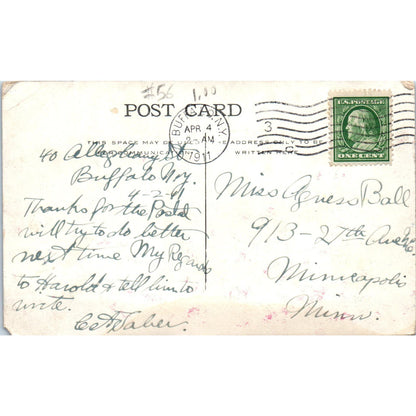 $56 1.00
POST CARD
BUFFALO, N.Y.
APR 4
2 - AM
1911
3
U.S. POSTAGE
ONE CENT
THIS SPACE MAY BE ADDRESS ONLY TO BE
COMMUNICATION WRITTEN HERE
40 Allegany St
Buffalo NY.
4-2-11
Thanks for the Postal
will try to do better
next time My Regards
to Harold & tell him to
write.
Taber.
Miss Agness Ball
913-27th Ave
Minneapolis
Minn.